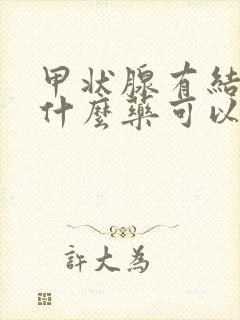 甲状腺有結
什麼藥可以
許大為